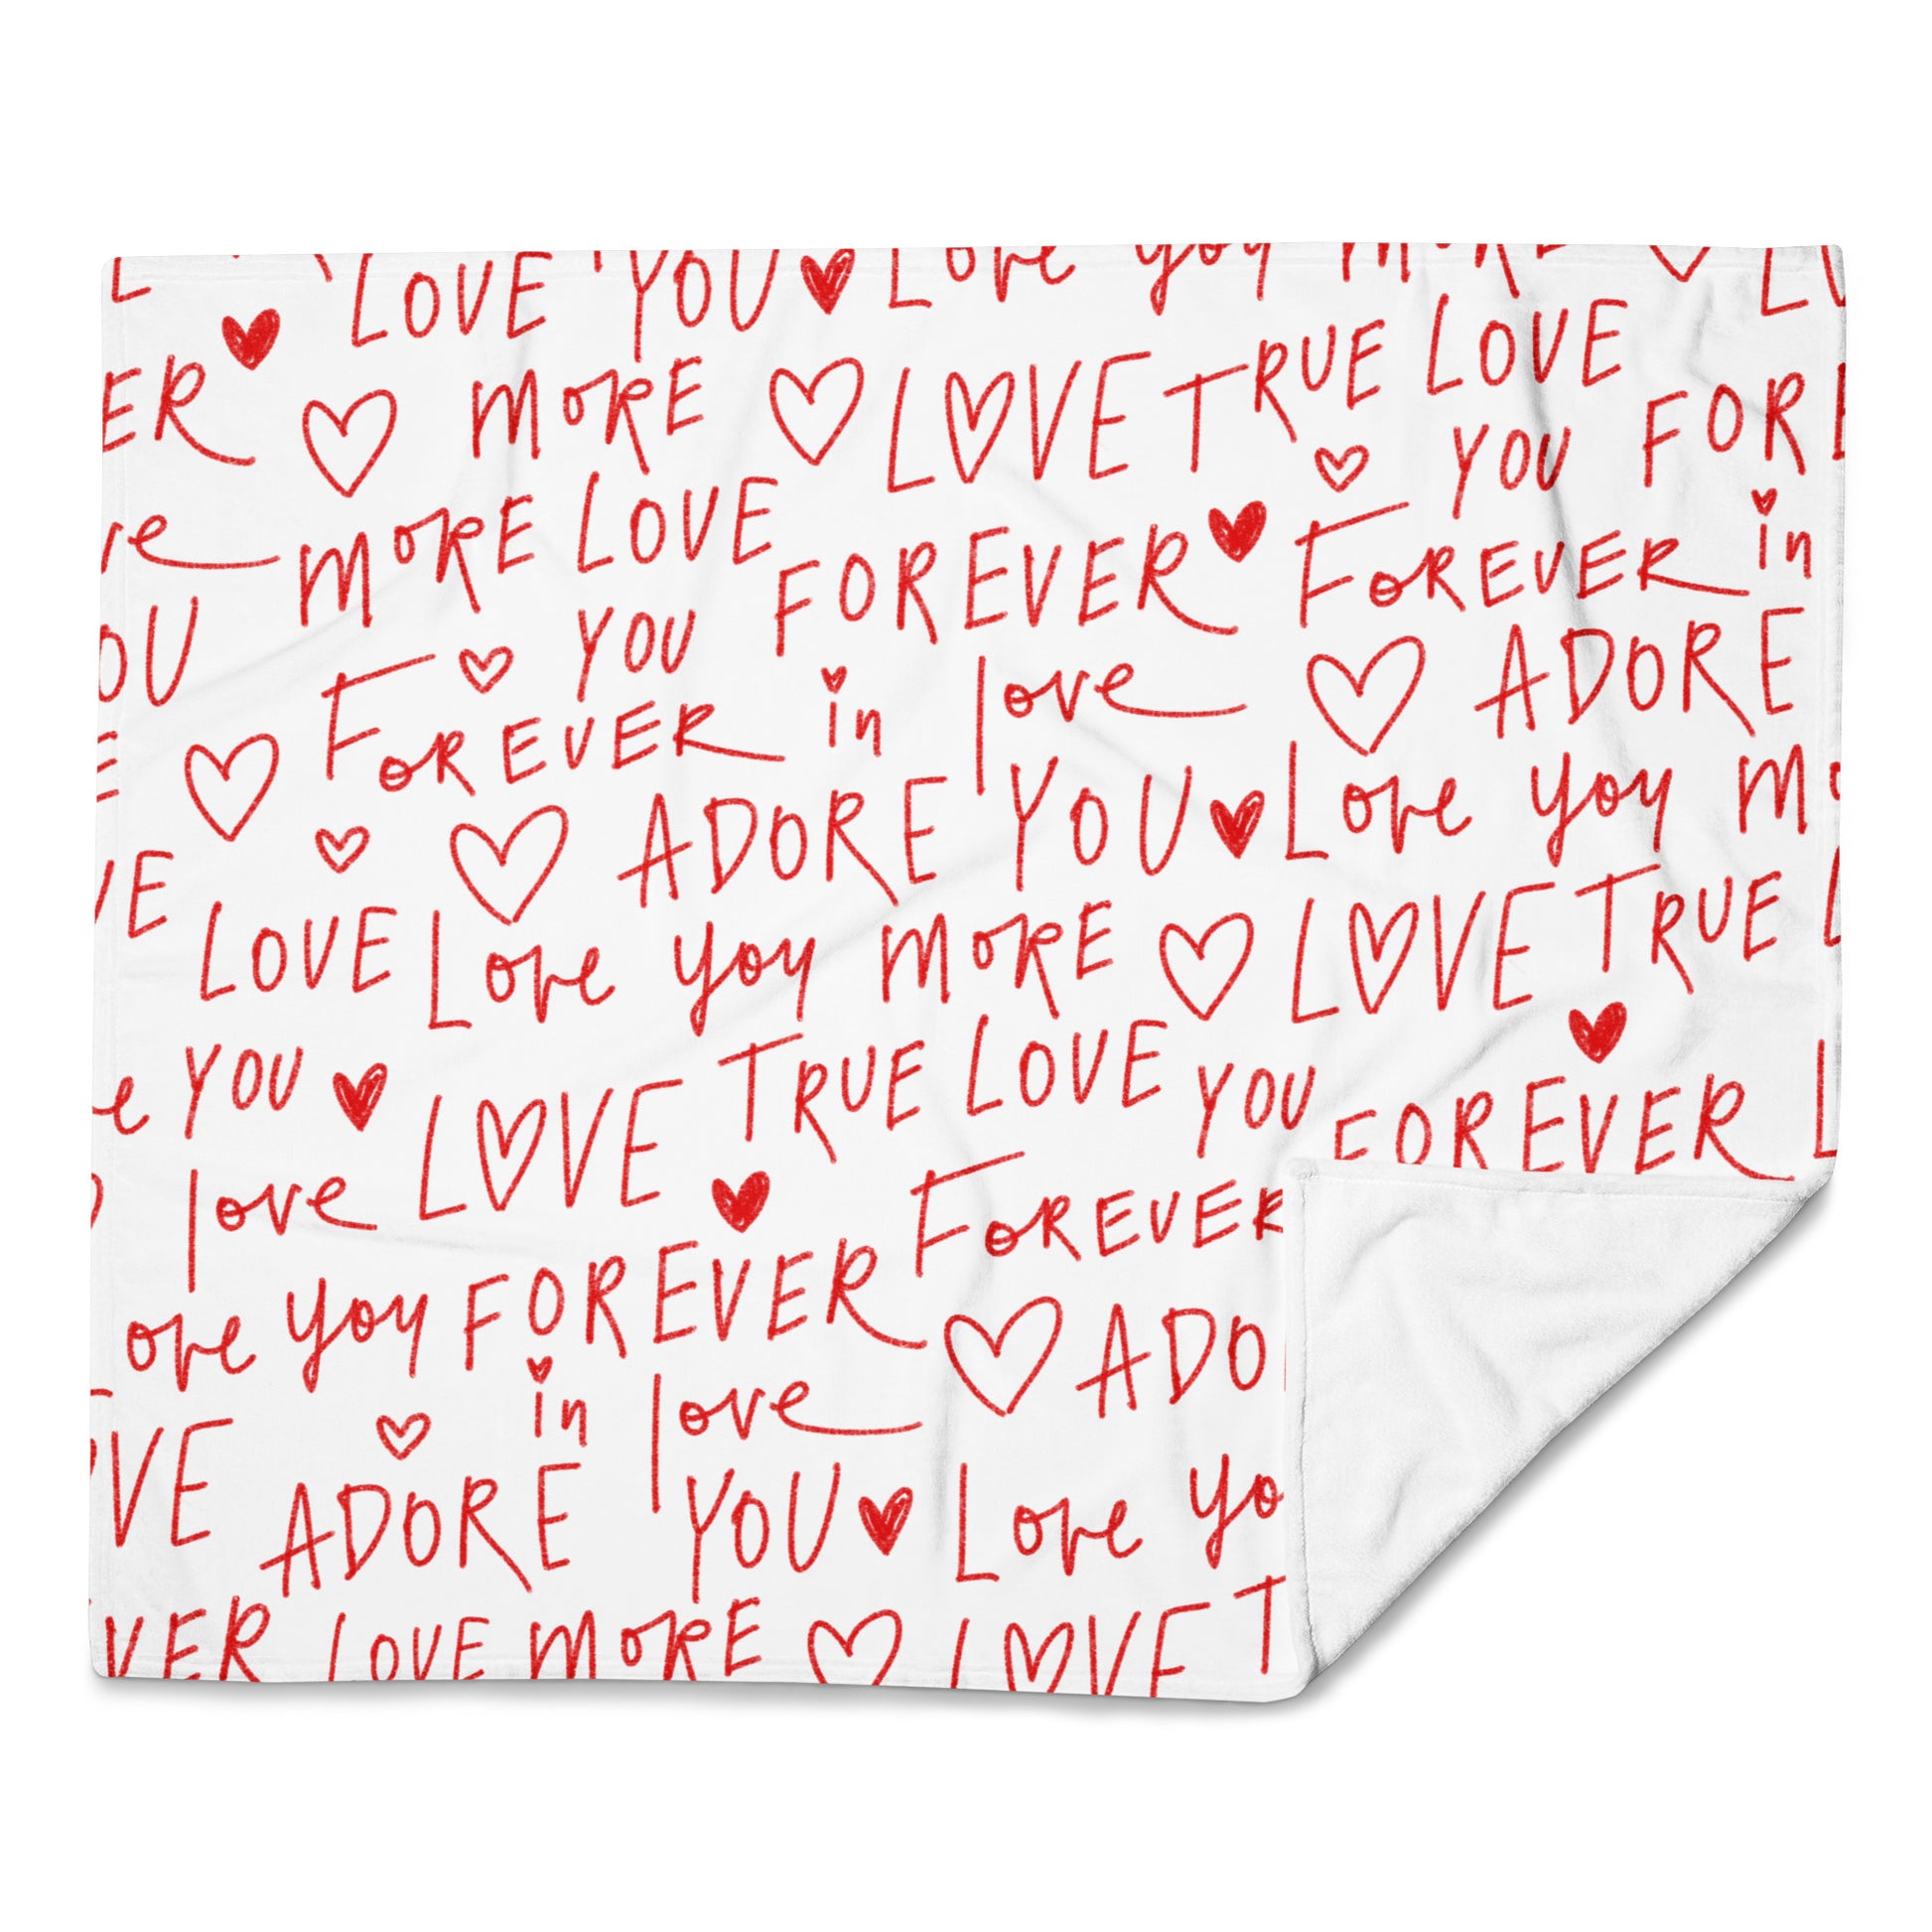 L LOVE YOU Love you MORE LO
ER MORE LOVE TRUE LOVE
YOU FORE
ve MORE LOVE FOREVER FOREVER in
OU YOU love ADORE
E FOREVER in
VE ADORE YOU Love you MO
LOVE Love you MORE LOVE TRUE L
e YOU LOVE TRUE LOVE YOU FOREVER L
love FOREVER
ove you FOREVER ADO
in love
OVE ADORE YOU Love yo
VER LOVE MORE LOVE T